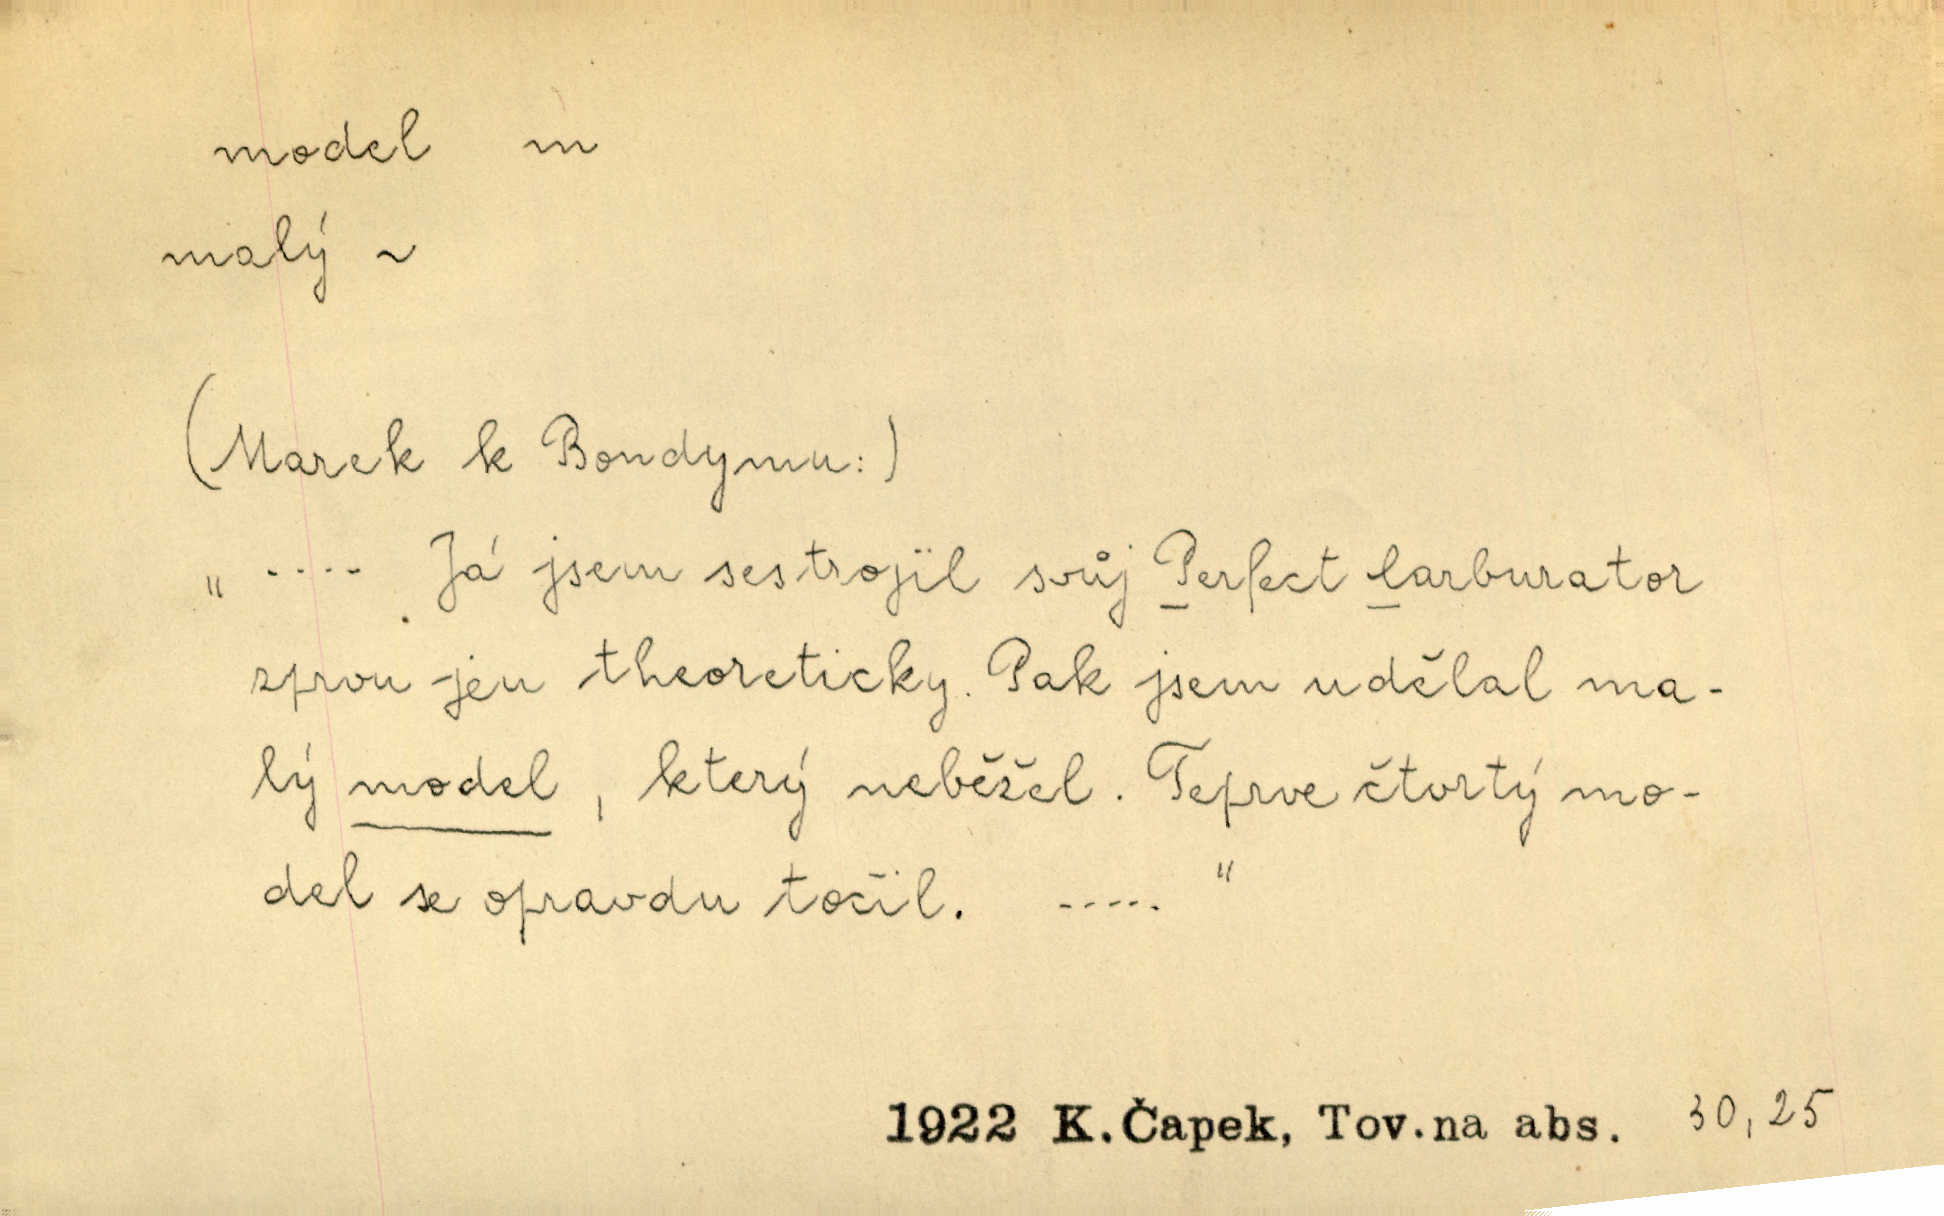 model m
malý ~
(Marek k Bondymu:)
„ .... Já jsem sestrojil svůj Perfect Carburator
zprvu jen theoreticky. Pak jsem udělal ma-
lý model, který neběžel. Teprve čtvrtý mo-
del se opravdu točil. ....."
1922 K.Čapek, Tov.na abs. 30,25